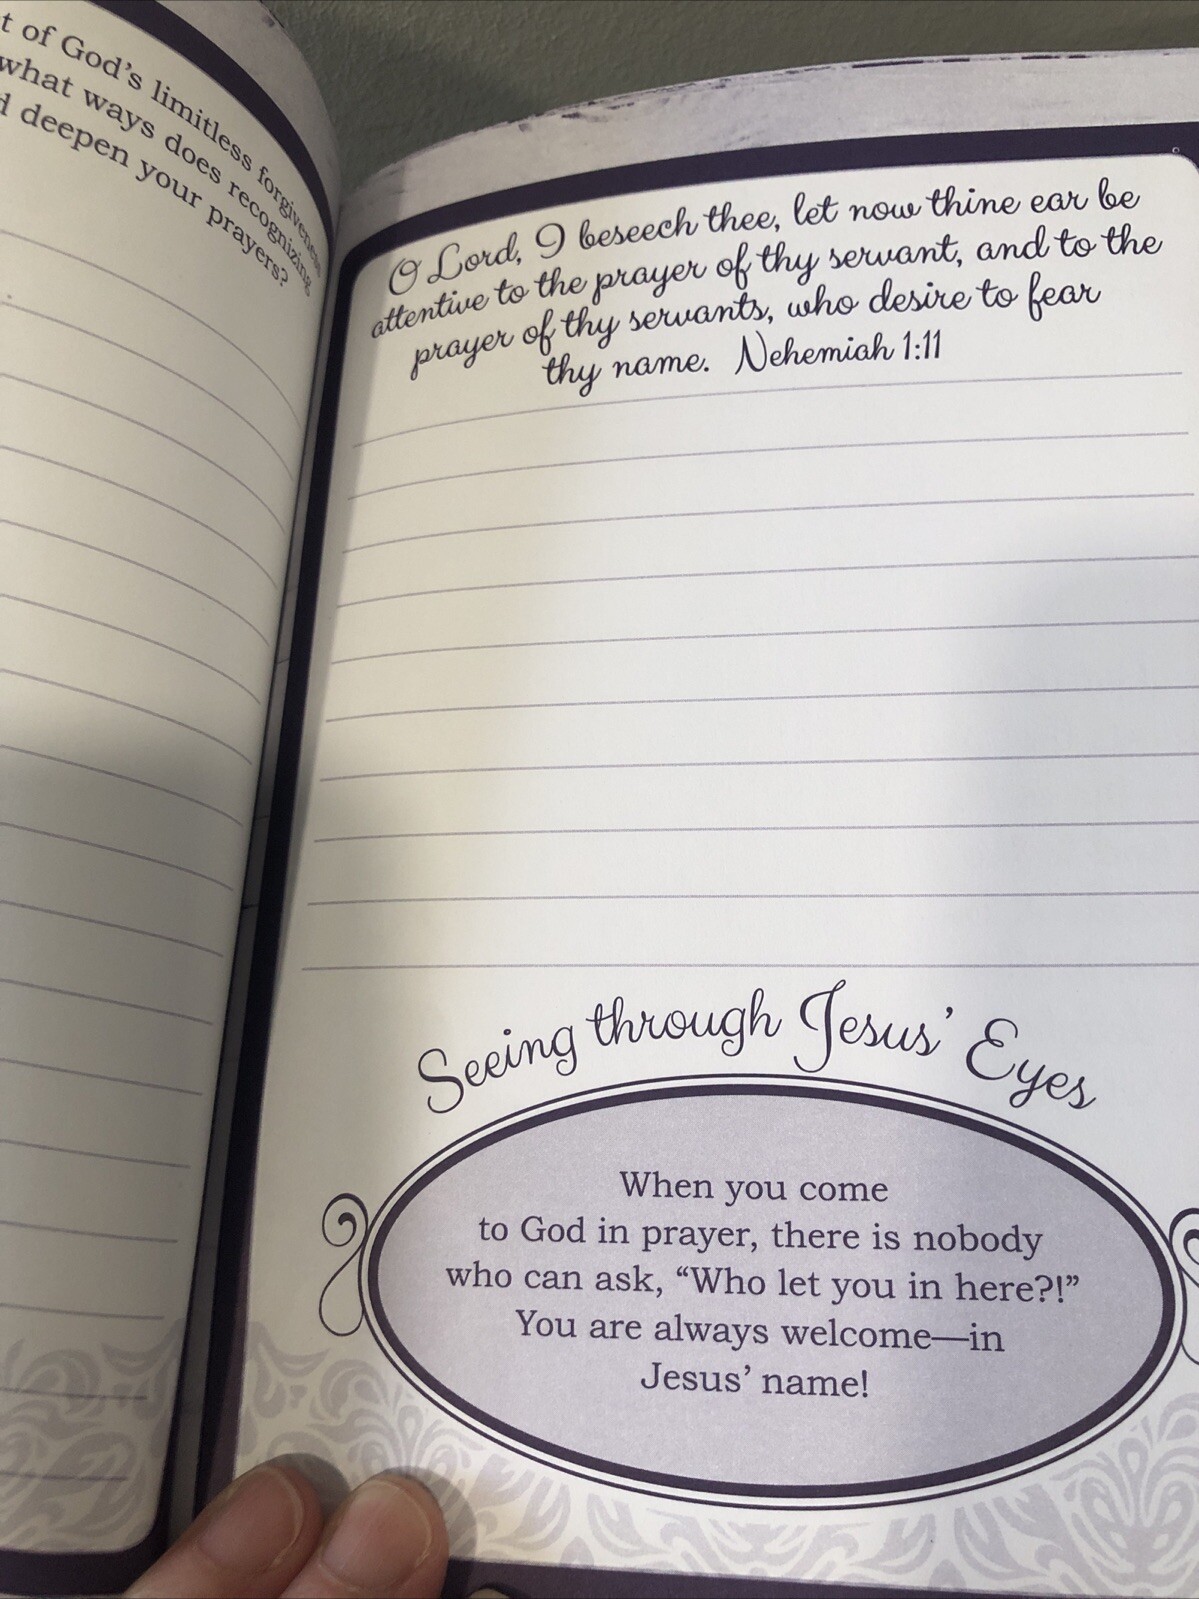 t of God's limitless forgiveness
what ways does recognizing
d deepen your prayers?
O Lord, I beseech thee, let now thine ear be
attentive to the prayer of thy servant, and to the
prayer of thy servants, who desire to fear
thy name. Nehemiah 1:11
Seeing through Jesus' Eyes
When you come
to God in prayer, there is nobody
who can ask, “Who let you in here?!”
You are always welcome—in
Jesus' name!